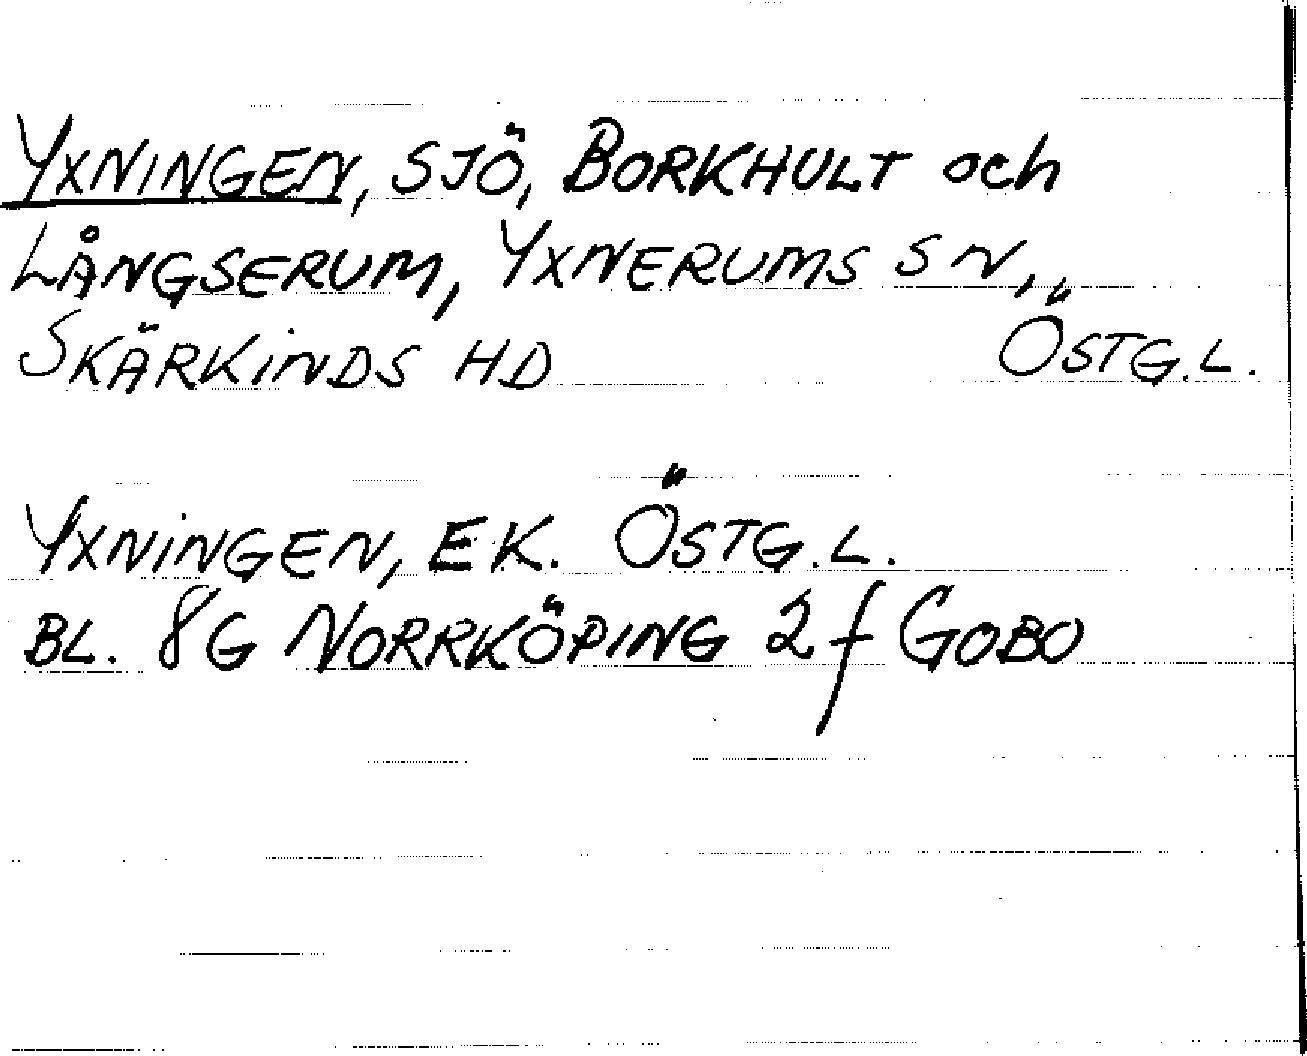 YXNINGEN, SJÖ, BORKHULT och
LÅNGSERUM, YXNERUMS SN,
SKÄRKINDS HD ÖSTG.L.
YXNINGEN, EK. ÖSTG.L.
BL. 8G NORRKÖPING 2f GOBO